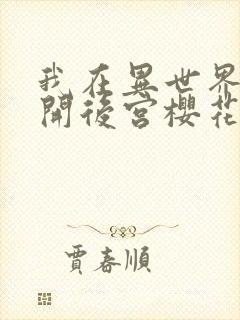 我在異世界
開後宮櫻花
賈春順